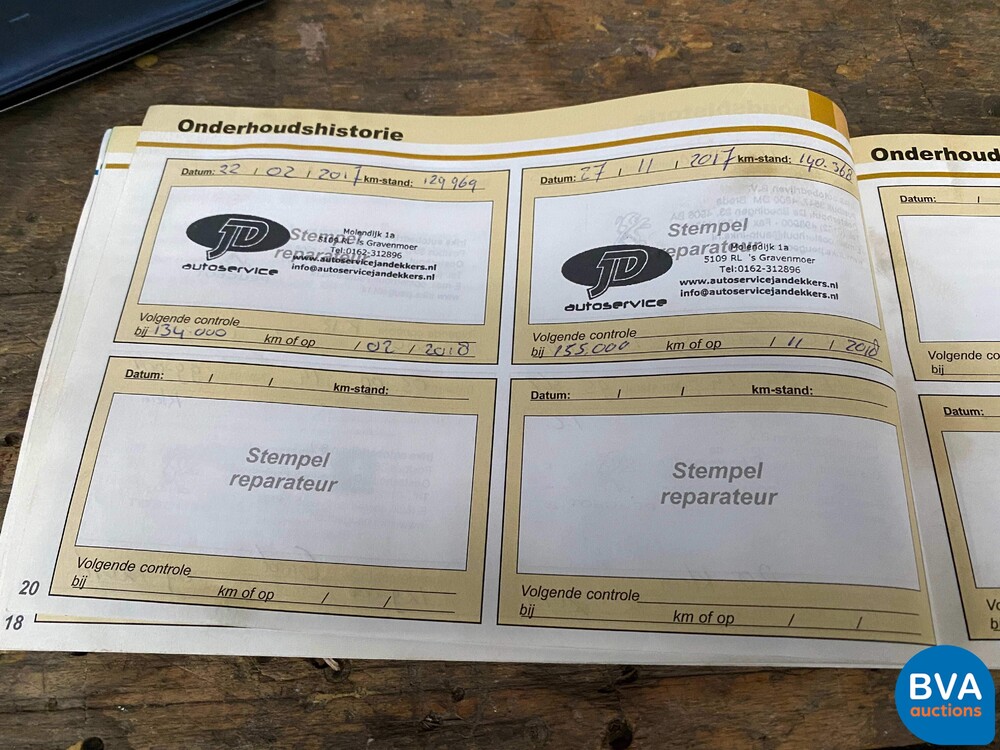 Onderhoudshistorie
Datum: 22 / 02 / 2017 km-stand: 129969
JD
autoservice
Stempel
reparateur
Molendijk 1a
5109 RL 's Gravenmoer
Tel:0162-312896
www.autoservicejandekkers.nl
info@autoservicejandekkers.nl
Volgende controle
bij 134.000 km of op / 02 / 2018
Datum: 27 / 11 / 2017 km-stand: 140.368
Stempel
reparateur
JD
autoservice
Molendijk 1a
5109 RL 's Gravenmoer
Tel:0162-312896
www.autoservicejandekkers.nl
info@autoservicejandekkers.nl
Volgende controle
bij 155.000 km of op / 11 / 2018
Datum: / / km-stand:
Stempel
reparateur
Volgende controle
bij km of op / /
Datum: / / km-stand:
Stempel
reparateur
Volgende controle
bij km of op / /
20
18
Onderhoud
Datum: /
Volgende co
bij
Datum:
Vo
b
BVA
auctions